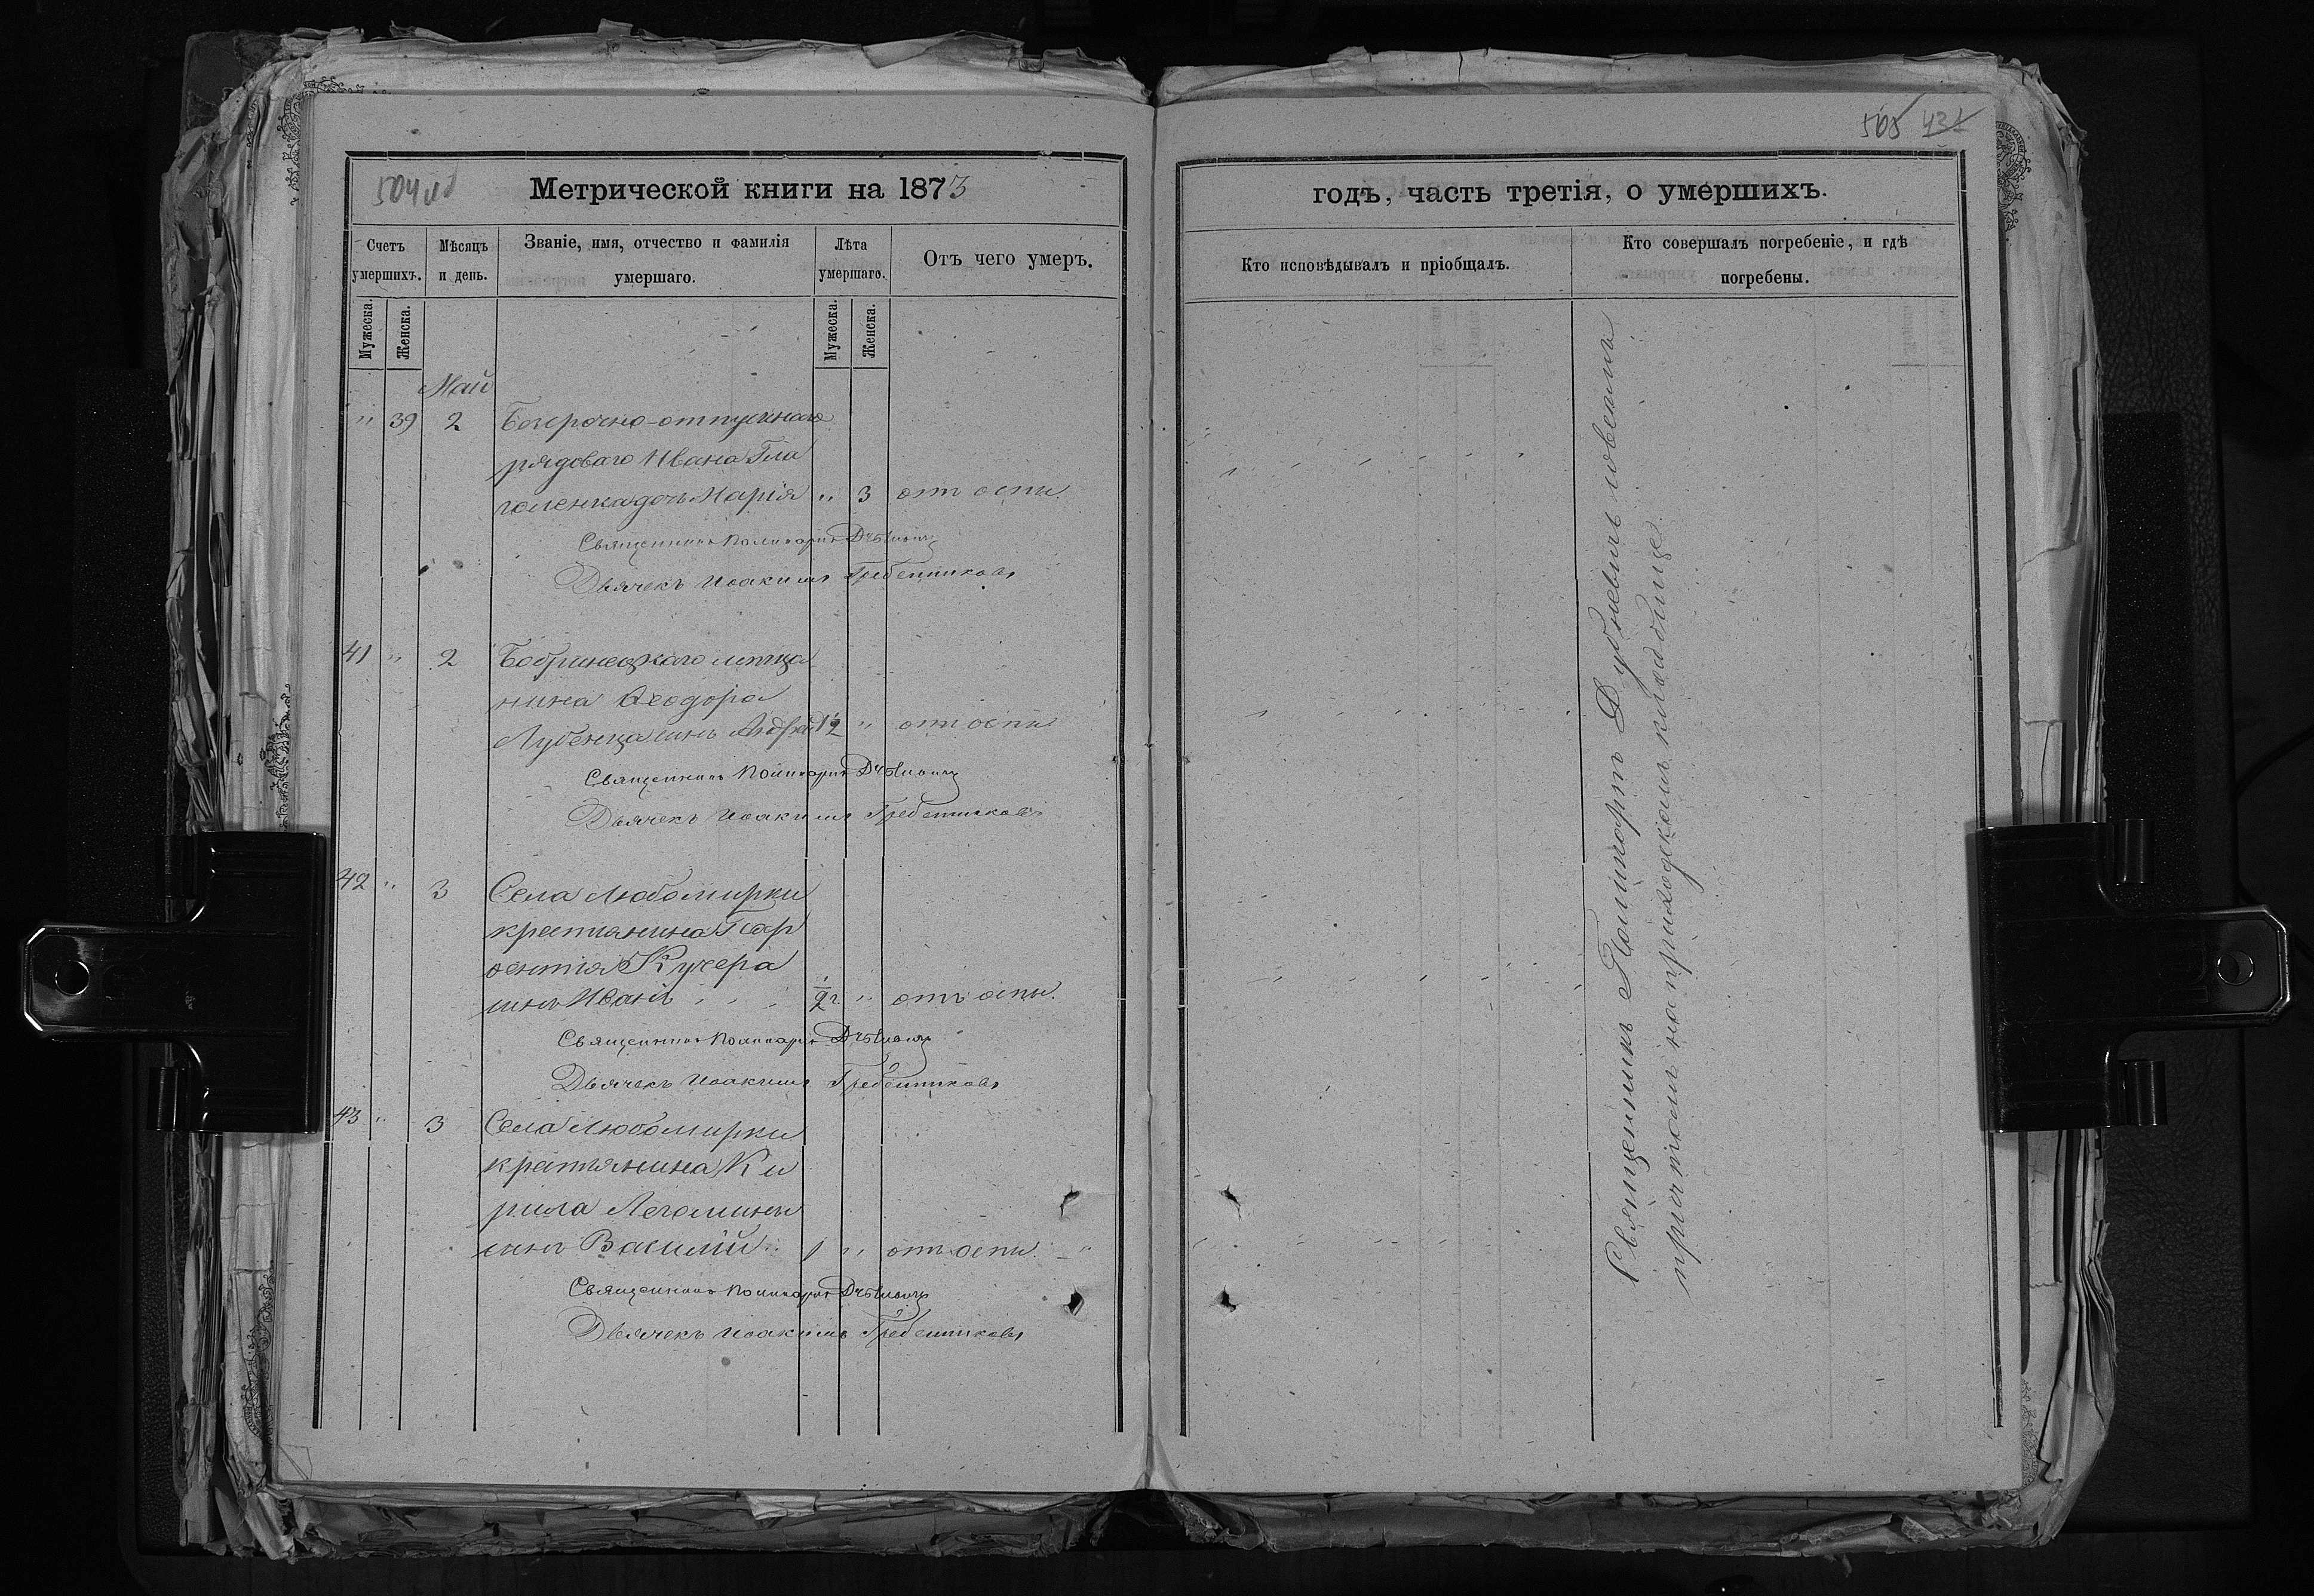 504об
Метрической книги на 1873
Счетъ умершихъ.
Мѣсяцъ и день.
Званіе, имя, отчество и фамилія умершаго.
Лѣта умершаго.
Отъ чего умеръ.
Мужеска.
Женска.
Мужеска.
Женска.
Май
" 39 2 Безсрочно-отпускнаго
рядоваго Ивана Гла
голенка дочь Марія " 3 отъ оспи.
Священникъ Поликарпъ Дублевичъ
Дьячекъ Иоакимъ Гребенниковъ
41 " 2 Бобринецкаго мѣща
нина Ѳеодора
Лубенца сынъ 1/2 " отъ оспи
Священникъ Поликарпъ Дублевичъ
Дьячекъ Иоакимъ Гребенниковъ
42 " 3 Села Любомирки
крестянина Пар
ѳентія Кучера
сынъ Иванъ 1/2 г. " отъ оспи.
Священникъ Поликарпъ Дублевичъ
Дьячекъ Иоакимъ Гребенниковъ
43 " 3 Села Любомирки
крестянина Ки
рила
сынъ Василій 1 " отъ оспи.
Священникъ Поликарпъ Дублевичъ
Дьячекъ Иоакимъ Гребенниковъ
505 431
годъ, часть третія, о умершихъ.
Кто исповѣдывалъ и пріобщалъ.
Кто совершалъ погребеніе, и гдѣ погребены.
Священникъ Поликарпъ Дублевичъ совсѣмъ
причтомъ на приходскомъ кладбище.